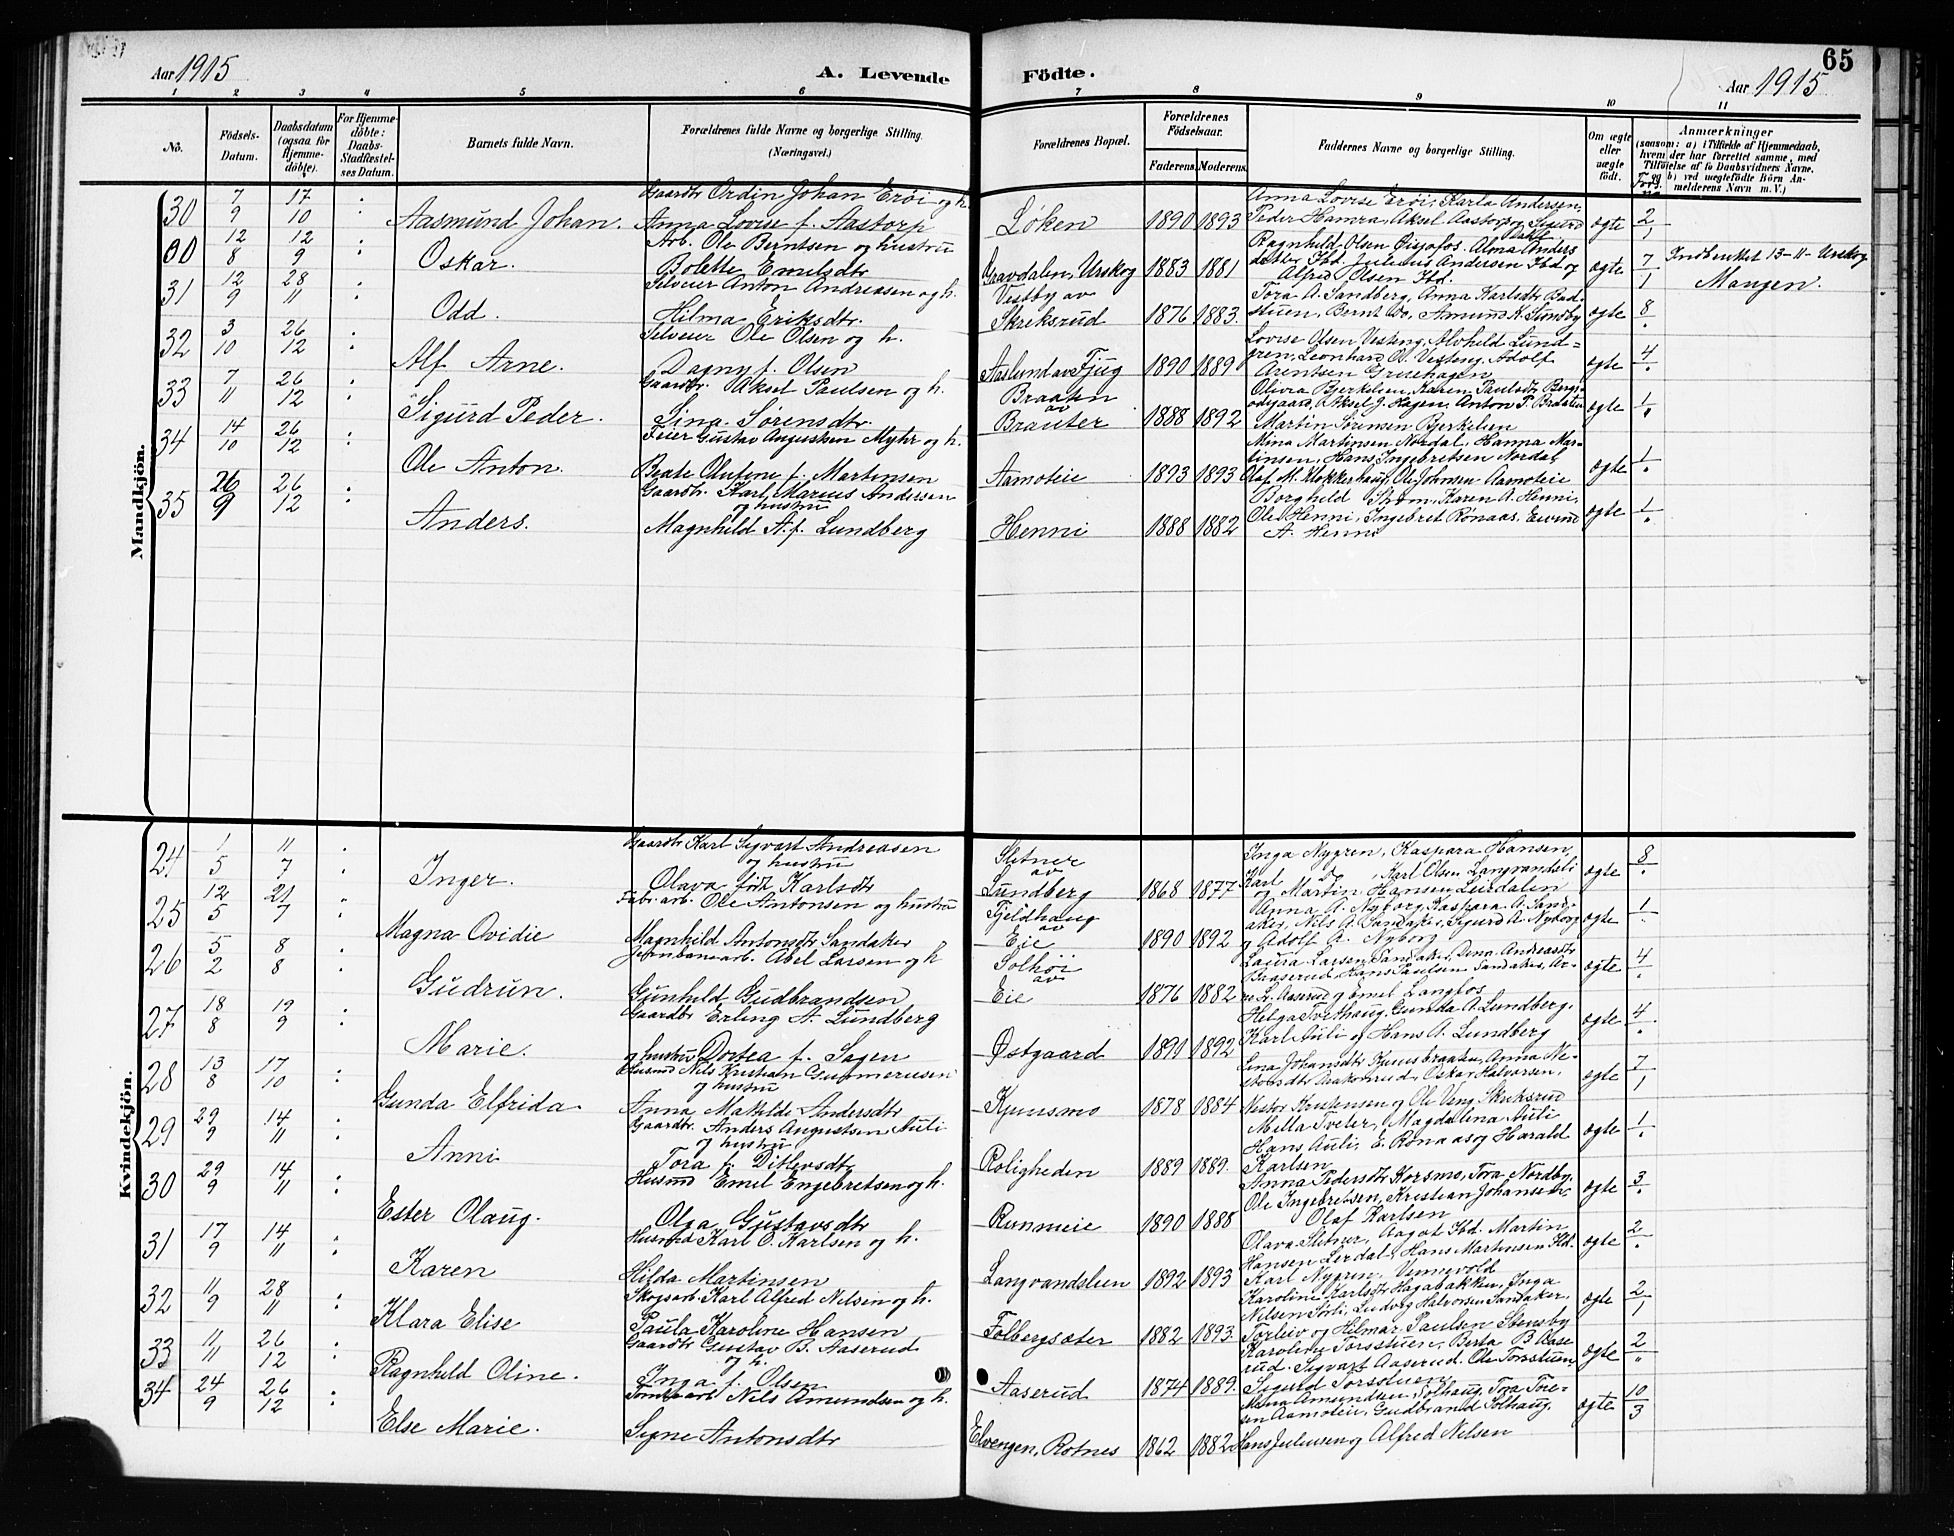 Aar 1915
A. Levende
Födte.
65
Aar 1915
1 2 3 4 5 6 7 8 9 10 11
No.
Födsels-Datum.
Daabsdatum (ogsaa for Hjemmedöbte).
For Hjemmedöbte: Daabs-Stadfæstelses Datum.
Barnets fulde Navn.
Forældrenes fulde Navne og borgerlige Stilling. (Næringsvei.)
Forældrenes Bopæl.
Forældrenes Födselsaar.
Faderens. Moderens.
Faddernes Navne og borgerlige Stilling.
Om ægte eller uægte födt.
Anmærkninger
(saasom: a) i Tilfælde af Hjemmedaab, hvem der har forrettet samme, med Tilföielse af to Daabsvidners Navne. og b) ved uægtefödte Börn Anmelderens Navn m. V.)
Mandkjön.
30 7/9 17/10 Aasmund Johan. Gaardbr Ordin Johan Erøi og h. Anna Lovise f. Aastorp Løken 1890 1893 Anna Lovise Erøi, Karla Andersen, Peder Hamra, Aksel Aastorp og Sigurd ægte 2/1
30 12/8 12/9 Oskar. Arb. Ole Berntsen og hustru Bolette Emilsdtr Gravdalen, Urskog 1883 1881 Ragnhild Olsen Alma Andersdatter Ibd. Julius Andersen Ibd og Alfred Olsen Ibd. ægte 7/1 Indberettet 13-11- Urskog Mangen.
31 12/9 28/11 Odd. Selveier Anton Andreasen og h. Hilma Eriksdtr. Vestby av Skreksrud 1876 1883. Tora A. Sandberg, Anna Karlsdtr Badstuen, Bernt Do, Amund K. Sundby ægte 8/.
32 3/10 26/12 Alf Arne. Selveier Ole Olsen og h. Dagny f. Olsen Aaslund av Fjug 1890 1889 Lovise Olsen Vesteng, Alvhild Lundgren, Leonhard O. Vesteng, Adolf Arentsen ægte 4/.
33 7/11 26/12 Sigurd Peder. Gaardbr. Aksel Paulsen og h. Lina Sørensdtr. Braaten av Brauter 1888 1892 Olivia Bjerkelien, Karen Paulsdtr Aksel J. Hagen, Anton P. Braaten Martin Sørensen Bjerkelien ægte 1/.
34 14/10 26/12 Ole Anton. Feier Gustav Augustsen Myhr og h. Beate Olufine f. Martinsen Aamoteie 1893 1893 Mina Martinsen Nordal, Hanna Martinsen, Hans Ingebretsen Nordal, Olaf M. Klokkerhaug, Ole Johnsen Aamoteie ægte 1/.
35 26/9 26/12 Anders. Gaardbr. Karl Marius Andersen og hustru Magnhild A. f. Lundberg Henni 1888 1882 Borghild Strøm, Karen A. Henni, Ole Henni, Ingebret Rønaas, Eivind A. Henni ægte 1/.
Kvindekjön.
24 1/5 11/7 Inger. Gaardbr Karl Sigvart Andreasen og hustru Olava født Karlsdtr Sletner av Lundberg 1868 1877 Inga Nygren, Kaspara Hansen, Karl Karl Olsen Langvandsli og Martin Hansen Leirdalen ægte 8/.
25 12/5 21/7 Magna Ovidie Fabr. arb. Ole Antonsen og hustru Magnhild Antonsdtr Sandaker Fjeldhaug av Eie 1890 1892 Anna A. Nyborg, Kaspara A. Sandaker, Nils A. Sandaker, Sigurd A. Nyborg og Adolf A. Nyborg ægte 1/.
26 5/2 8/8 Gudrun. Jernbanearb. Abel Larsen og h Gunhild Gudbrandsen Solhøi av Eie 1876 1882 Laura Larsen Sandaker, Dina Andreasdtr Braserud, Hans Paulsen Sandaker, Aaserud og Emil Langfos ægte 4/.
27 18/8 19/9 Marie. Gaardbr Erling A. Lundberg og hustru Dortea f. Sagen Østgaard 1891 1892 Helga Tvethaug, Gunda A. Lundberg, Karl Auli og Hans A. Lundberg ægte 4/.
28 13/8 17/10 Gunda Elfrida. Husmd Nils Kristian Gummerusen og hustru Anna Mathilde Andersdtr Kjuusmo 1878 1884 Lina Johansdtr Kjuusbraaten, Anna Nestorsdtr Oskar Halvorsen, Nestor Kristensen og Ole Veng Skriksrud ægte 7/1
29 29/9 14/11 Anni Gaardbr. Anders Augustsen Auli og hustru Tora f. Ditlevsdtr Roligheden 1889 1889. Milla Tveter, Magdalena Auli Hans Auli, E. Rønaas og Harald Karlsen ægte 1/.
30 29/9 14/11 Ester Olaug. Husmd Emil Engebretsen og h. Olga Gustavsdtr Runnieie 1890 1888 Anna Pedersdtr Korsmo, Tora Nordby, Ole Ingebretsen, Kristian Johansen, Olaf Karlsen ægte 3/.
31 17/9 14/11 Karen Husmd Karl O. Karlsen og h. Hilda Martinsen Langvandslien 1892 1893 Olava Sletner, Aagot Ibd. Martin Hansen Lerdal, Hans Martinsen Ibd. Karl Nygren, Vennevold ægte 2/.
32 11/9 28/11 Klara Elise Skogsarb. Karl Alfred Nilsen og h. Paula Karoline Hansen Folbergsæter 1882 1893 Karoline Karlsdtr Hagabakken, Inga Nilsen Sørli, Ludvig Halvorsen Sandaker, Torleiv og Hilmar Paulsen Stensby ægte 2/1
33 11/11 26/12 Ragnhild Oline. Gaardbr Gustav B. Aaserud og h. Inga f. Olsen Aaserud 1874 1889. Karoline Torsstuen, Berta B. Aaserud, Sigvart Aaserud, Ole Torsstuen Sigurd Torsstuen ægte 2/"
34 24/9 26/12 Else Marie. Tomtearb Nils Amundsen og h. Signe Antonsdtr Elvengen, Rotnes 1862 1882 Maria Amundsen, Solhaug, Tora Toresen Aamoteie, Gudbrand Solhaug, Hans Juliussen og Alfred Nilsen ægte 10/3